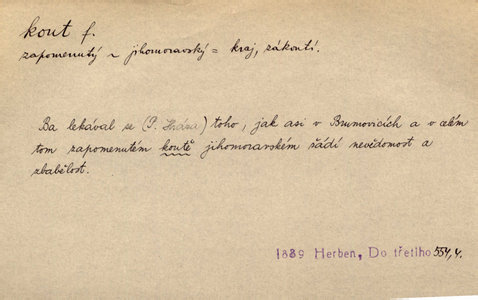 kout f.
zapomenutý ~ jihomoravský = kraj, zákoutí.
Ba lekával se (P. Hráza) toho, jak asi v Brumovicích a v celém
tom zapomenutém koutě jihomoravském řádí nevědomost a
zbabělost.
1889 Herben, Do třetího 554,4.